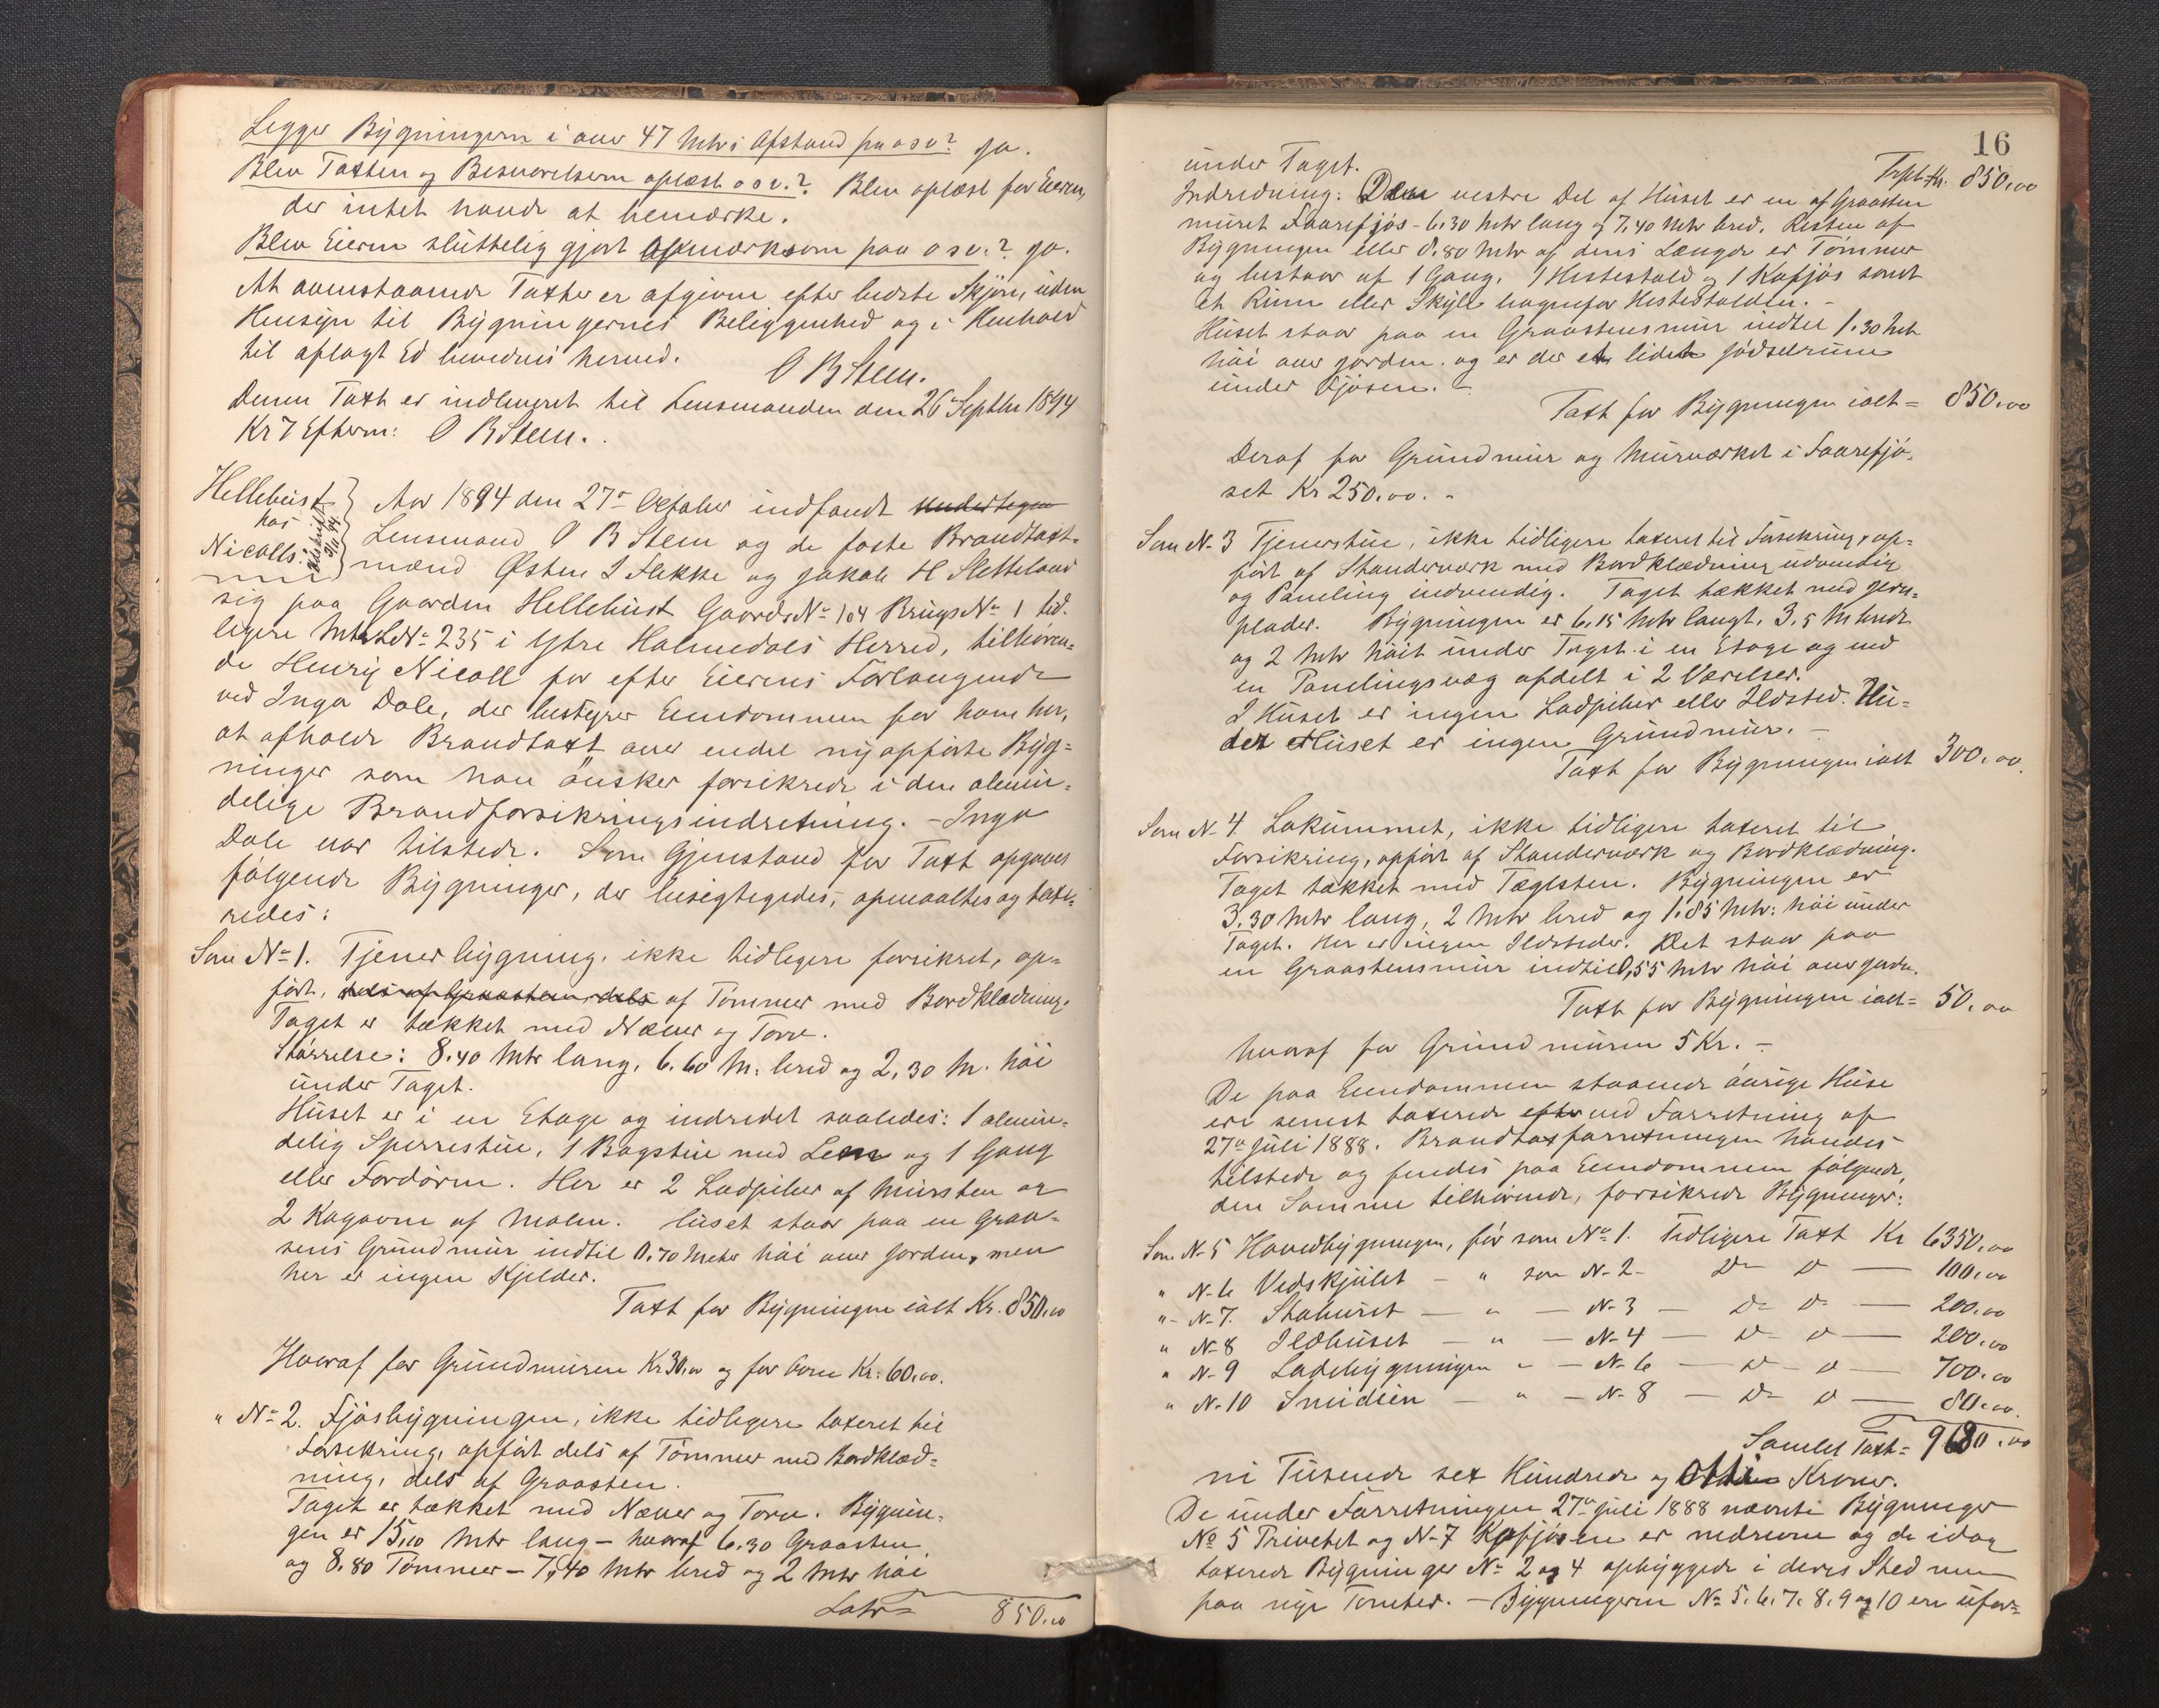 Legger Bygningern i over 47 Mtrs Afstand fra osv? Ja.
Blev Taxten og Besvarelsern oplæst osv.? Blev oplæst for Eieren,
der intet havde at bemærke.
Blev Eieren sluttelig gjort opmærksom paa osv.? Ja.
At ovenstaaende Taxter er afgivne efter bedste Skjøn, uden
Hensyn til Bygningernes Beliggenhed og i Henhold
til aflagt Ed bevidnes herved.
O B Stem.
Denne Taxt er indleveret til Lensmanden den 26 Septbr 1894
Kl 7 Efterm: O B Stem.
Hellehust hos Nicolls
Aar 1894 den 27de Oktober indfandt undertegn
Lensmand O B Stem og de faste Brandtaxt-
mænd Østen I Flekke og Jakob H Sletteland
sig paa Gaarden Hellehust Gaards No 104 Brugs No 1 tid-
ligere Mtr L No 235 i Ytre Holmedals Herred, tilhøren-
de Henrij Nicoll for efter Eierens Forlangende
ved Inga Dale, der bestyrer Eiendommen for ham her,
at afholde Brandtaxt over endel ny opførte Byg-
ninger som han ønsker forsikrede i den almin-
delige Brandforsikringsindretning. - Inga
Dale var tilstede. Som Gjenstand for Taxt opgaves
følgende Bygninger, der besigtigedes, opmaaltes og taxe-
redes:
Som No 1. Tjenerbygning, ikke tidligere forsikret, op-
ført, dels af Graasten, dels af Tømmer med Bordklædning.
Taget er tækket med Næver og Torv.
Størrelse: 8.40 Mtr lang, 6.60 M. bred og 2,30 M. høi
under Taget.
Huset er i en Etage og indredet saaledes: 1 almin-
delig Sperrestue, 1 Bagstue med Lem og 1 Gang
eller Fordør. Her er 2 Ladpiber af Mursten og
2 Kogovne af Malm. Huset staar paa en Graa-
stens Grundmur indtil 0.70 Meter høi over Jorden, men
her er ingen Kjelder.
Taxt for Bygningen ialt Kr. 850.00
Hvoraf for Grundmuren Kr 30,00 og for Ovne Kr. 60.00.
" No 2. Fjøsbygningen, ikke tidligere taxeret til
Forsikring, opført dels af Tømmer med Bordklæd-
ning, dels af Graasten.
Taget er tækket med Næver og Torv. Bygnin-
gen er 15,10 Mtr lang - hvoraf 6.30 Graasten
og 8.80 Tømmer - 7,40 Mtr bred og 2 Mtr høi
Latr 850.00
16
Trspt. Kr. 850.00
under Taget.
Indredning: Den vestre Del af Huset er en af Graasten
muret Faarefjøs - 6.30 Mtr lang og 7,40 Mtr bred. Resten af
Bygningen eller 8.80 Mtr af dens Længde er Tømmer
og bestaar af 1 Gang, 1 Hestestald og 1 Kofjøs samt
et Rum eller Skyle bagenfor Hestestalden. -
Huset staar paa en Graastensmur indtil 1.30 Mtr
høi over Jorden. og er der et lidet Gjødselrum
under Fjøsen. -
Taxt for Bygningen ialt = 850.00
Deraf for Grundmur og Murværket i Faarefjø-
set Kr 250.00. -
Som No 3 Tjenerstue, ikke tidligere taxeret til Forsikring, op-
ført af Standerværk med Bordklædning udvendig
og Paneling indvendig. Taget tækket med Jern-
plader. Bygningen er 6,15 Mtr langt, 3,5 M bredt
og 2 Mtr høit under Taget i en Etage og ved
en Panelingsvæg afdelt i 2 Værelser.
I Huset er ingen Ladpiber eller Ildsted. Un-
der Huset er ingen Grundmur. -
Taxt for Bygningen ialt 300.00
Som No 4. Lokummet, ikke tidligere taxeret til
Forsikring, opført af Standerværk og Bordklædning.
Taget tækket med Taglsten. Bygningen er
3.30 Mtr lang, 2 Mtr bred og 1.85 Mtr. høi under
Taget. Her er ingen Ildsteder. Det staar paa
en Graastensmur indtil 0,55 Mtr høi over Jorden.
Taxt for Bygningen ialt = 50.00
hvoraf for Grundmuren 5 Kr. -
De paa Eiendommen staaende øvrige Huse
ere senest taxerede efter ved Forretning af
27de Juli 1888. Brandtaxforretningen havdes
tilstede og findes paa Eiendommen følgende,
den Samme tilhørende, forsikrede Bygninger:
Som No 5 Hovedbygningen, før som No 1. Tidligere Taxt Kr 6350.00
" No 6 Vedskjulet - " som No 2 - Do Do - 100.00
" No 7. Stabburet - " - No 3 - Do Do - 200.00
" No 8 Ildhuset - " - No 4 - Do Do - 200.00
" No 9 Ladebygningen " - No 6 - Do Do - 700.00
" No 10 Smidien - " - No 8 - Do Do - 80.00.
Samlet Taxt = 9680.00
ni Tusende sex Hundrede og otti Kroner.
De under Forretningen 27de Juli 1888 nævnte Bygninger
No 5 Privetet og No 7 Kofjøsen er nedrevne og de idag
taxerede Bygninger No 2 og 4 opbyggede i deres Sted men
paa nye Tomter. - Bygningerne No 5. 6. 7. 8. 9 og 10 ere ufor-